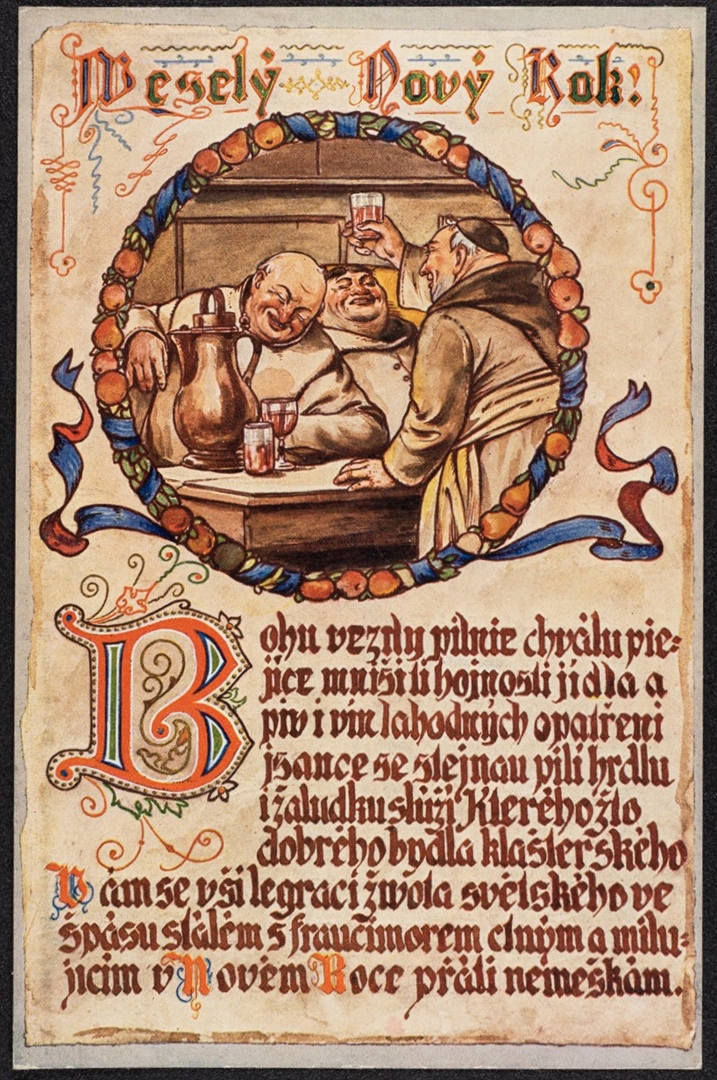 Weselý Nový Rok!
Bohu vezdy pilnie chválu pie=
jíce mniši ti hojnosti jídla a
piv i vín lahodných opatřeni
jsauce se stejnau pílí hrdlu
i žaludku slúží Kteréhožto
dobrého bydla klášterského
Vám se vší legrací života světského ve
špásu stálém s fraucimorem ctným a milu=
jícím v Novém Roce přáti nemeškám.